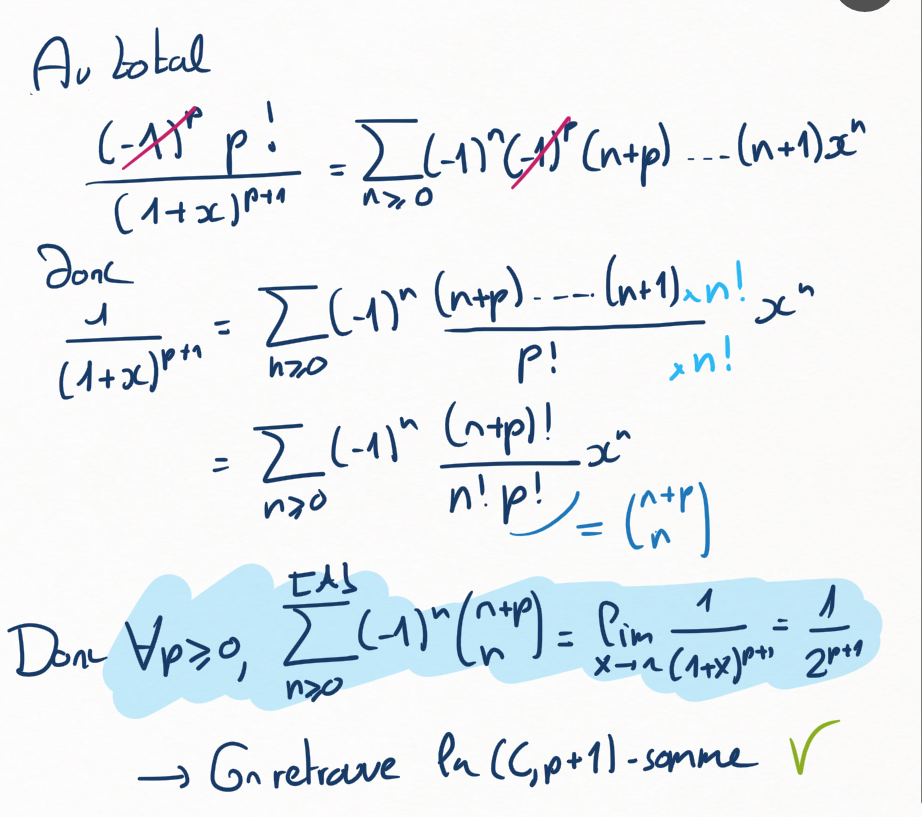 Au total
(-1)^p p! / (1+x)^{p+1} = ∑_{n≥0} (-1)^n (-1)^p (n+p) ---- (n+1) x^n
Donc
1 / (1+x)^{p+1} = ∑_{n≥0} (-1)^n (n+p) ---- (n+1) × n! / p! × n! x^n
= ∑_{n≥0} (-1)^n (n+p)! / n! p! x^n
= (n+p n)
Donc ∀p≥0, [A] ∑_{n≥0} (-1)^n (n+p n) = lim_{x→1} 1 / (1+x)^{p+1} = 1 / 2^{p+1}
→ On retrouve la (C,p+1)-somme ✓